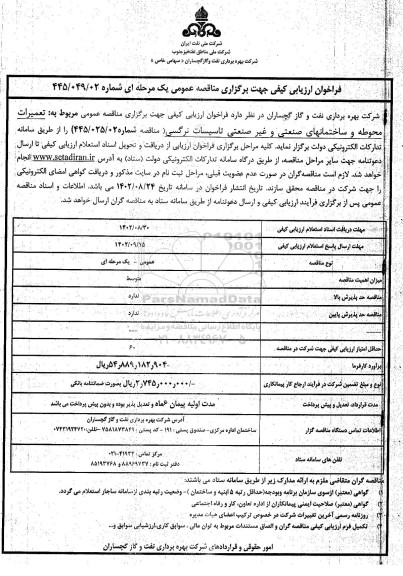 شرکت ملی نفت ایران
شرکت ملی مناطق نفتخیز جنوب
شرکت بهره برداری نفت و گاز گچساران « سهامی خاص »
فراخوان ارزیابی کیفی جهت برگزاری مناقصه عمومی یک مرحله ای شماره ۴۴۵/۰۴۹/۰۲
شرکت بهره برداری نفت و گاز گچساران در نظر دارد فراخوان ارزیابی کیفی جهت برگزاری مناقصه عمومی مربوط به: تعمیرات
محوطه و ساختمانهای صنعتی و غیر صنعتی تاسیسات نرگسی( مناقصه شماره۴۴۵/۰۲۵/۰۲) را از طریق سامانه
تدارکات الکترونیکی دولت برگزار نماید. کلیه مراحل برگزاری فراخوان ارزیابی از دریافت و تحویل اسناد استعلام ارزیابی کیفی تا ارسال
دعوتنامه جهت سایر مراحل مناقصه، از طریق درگاه سامانه تدارکات الکترونیکی دولت (ستاد) به آدرس www.setadiran.ir انجام
خواهد شد. لازم است مناقصه‌گران در صورت عدم عضویت قبلی، مراحل ثبت نام در سایت مذکور و دریافت گواهی امضای الکترونیکی
را جهت شرکت در مناقصه محقق سازند. تاریخ انتشار فراخوان در سامانه تاریخ ۱۴۰۲/۰۸/۲۴ می باشد. اطلاعات و اسناد مناقصه
عمومی پس از برگزاری فرآیند ارزیابی کیفی و ارسال دعوتنامه از طریق سامانه ستاد به مناقصه گران ارسال خواهد شد.
مهلت دریافت اسناد استعلام ارزیابی کیفی ۱۴۰۲/۰۸/۳۰
مهلت ارسال پاسخ استعلام ارزیابی کیفی ۱۴۰۲/۰۹/۱۵
نوع مناقصه عمومی - یک مرحله ای
میزان اهمیت مناقصه متوسط
مناقصه حد پذیرش بالا ندارد
مناقصه حد پذیرش پایین ندارد
ParsNamadData
حداقل امتیاز ارزیابی کیفی جهت شرکت در مناقصه ۶۰
برآورد کارفرما ۵۴٫۸۸۹٫۱۸۲٫۹۰۴ ریال
نوع و مبلغ تضمین شرکت در فرآیند ارجاع کار پیمانکاری ۲٫۷۴۵٫۰۰۰٫۰۰۰ ریال بصورت ضمانتنامه بانکی
مدت قرارداد، تعدیل و پیش پرداخت مدت اولیه پیمان ۶ماه و تعدیل پذیر بوده و بدون پیش پرداخت می باشد
آدرس شرکت بهره برداری نفت و گاز گچساران
اطلاعات تماس دستگاه مناقصه گزار ساختمان اداره مرکزی - صندوق پستی : ۱۹۱ - کد پستی :
تلفن های سامانه ستاد مرکز تماس: ۴۱۹۳۴-۰۲۱
دفتر ثبت نام : ۸۸۹۶۹۷۳۷ و ۸۵۱۹۳۷۶۸
مناقصه گران متقاضی ملزم به ارائه مدارک زیر از طریق سامانه ستاد می باشند:
گواهی (معتبر) ازسوی سازمان برنامه وبودجه(حداقل رتبه ۵ ابنیه و ساختمان ) - وضعیت رتبه بندی ازسامانه ساجار استعلام می گردد.
گواهی (معتبر) صلاحیت ایمنی پیمانکاران از اداره تعاون، کار و رفاه اجتماعی
روزنامه رسمی آخرین تغییرات شرکت در خصوص ترکیب اعضای هیات مدیره
تکمیل فرم ارزیابی کیفی مناقصه گران و الصاق مستندات مربوط به توان مالی ، سوابق کاری،ارزشیابی سوابق و..
امور حقوقی و قراردادهای شرکت بهره برداری نفت و گاز گچساران